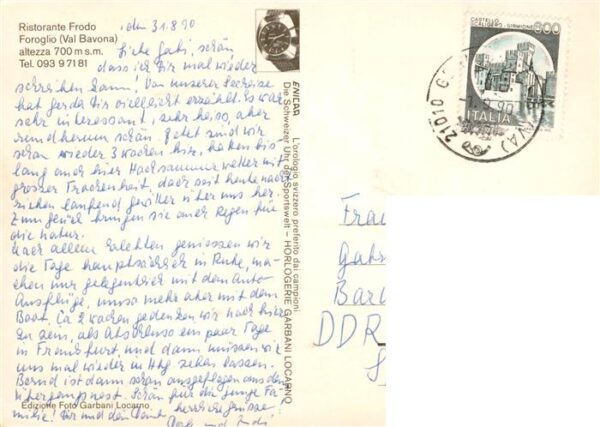 Ristorante Frodo
Foroglio (Val Bavona)
altezza 700 m s.m.
Tel. 093 9 71 81
, den 31.8.90
Liebe Gabi, schön
dass ich Dir mal wieder
schreiben kann! Von unserer Seereise
hat Gerda Dir vielleicht erzählt. Es war
sehr interessant, sehr heiss, aber
rundherum schön. Jetzt sind wir
schon wieder 3 Wochen hier, hatten bis-
lang auch hier Hochsommerwetter mit
grosser Trockenheit, doch seit heute nacht
ziehen laufend Gewitter über uns her.
Zum Glück bringen sie auch Regen für
die Natur.
Nach allem Erlebten geniessen wir
die Tage hauptsächlich in Ruhe, ma-
chen nur gelegentlich mit dem Auto
Ausflüge, umso mehr aber mit dem
Boot. Ca 2 Wochen gedenken wir noch hier
zu sein, als Abschluss ein paar Tage
in Frankfurt, und dann müssen wir
uns mal wieder in Hbg sehen lassen.
Bernd ist dann schon ausgeflogen aus dem
Schön für die junge Fa-
milie! Dir und den herzliche Grüsse
und
Edizione Foto Garbani Locarno
ENICAR
L'orologio svizzero preferito dai campioni
Die Schweizer Uhr der Sportswelt – HORLOGERIE GARBANI LOCARNO
CASTELLO
SIRMIONE
600
ITALIA
21010
1.9.90
(VA)
Frau
Gab
Bar
DDR